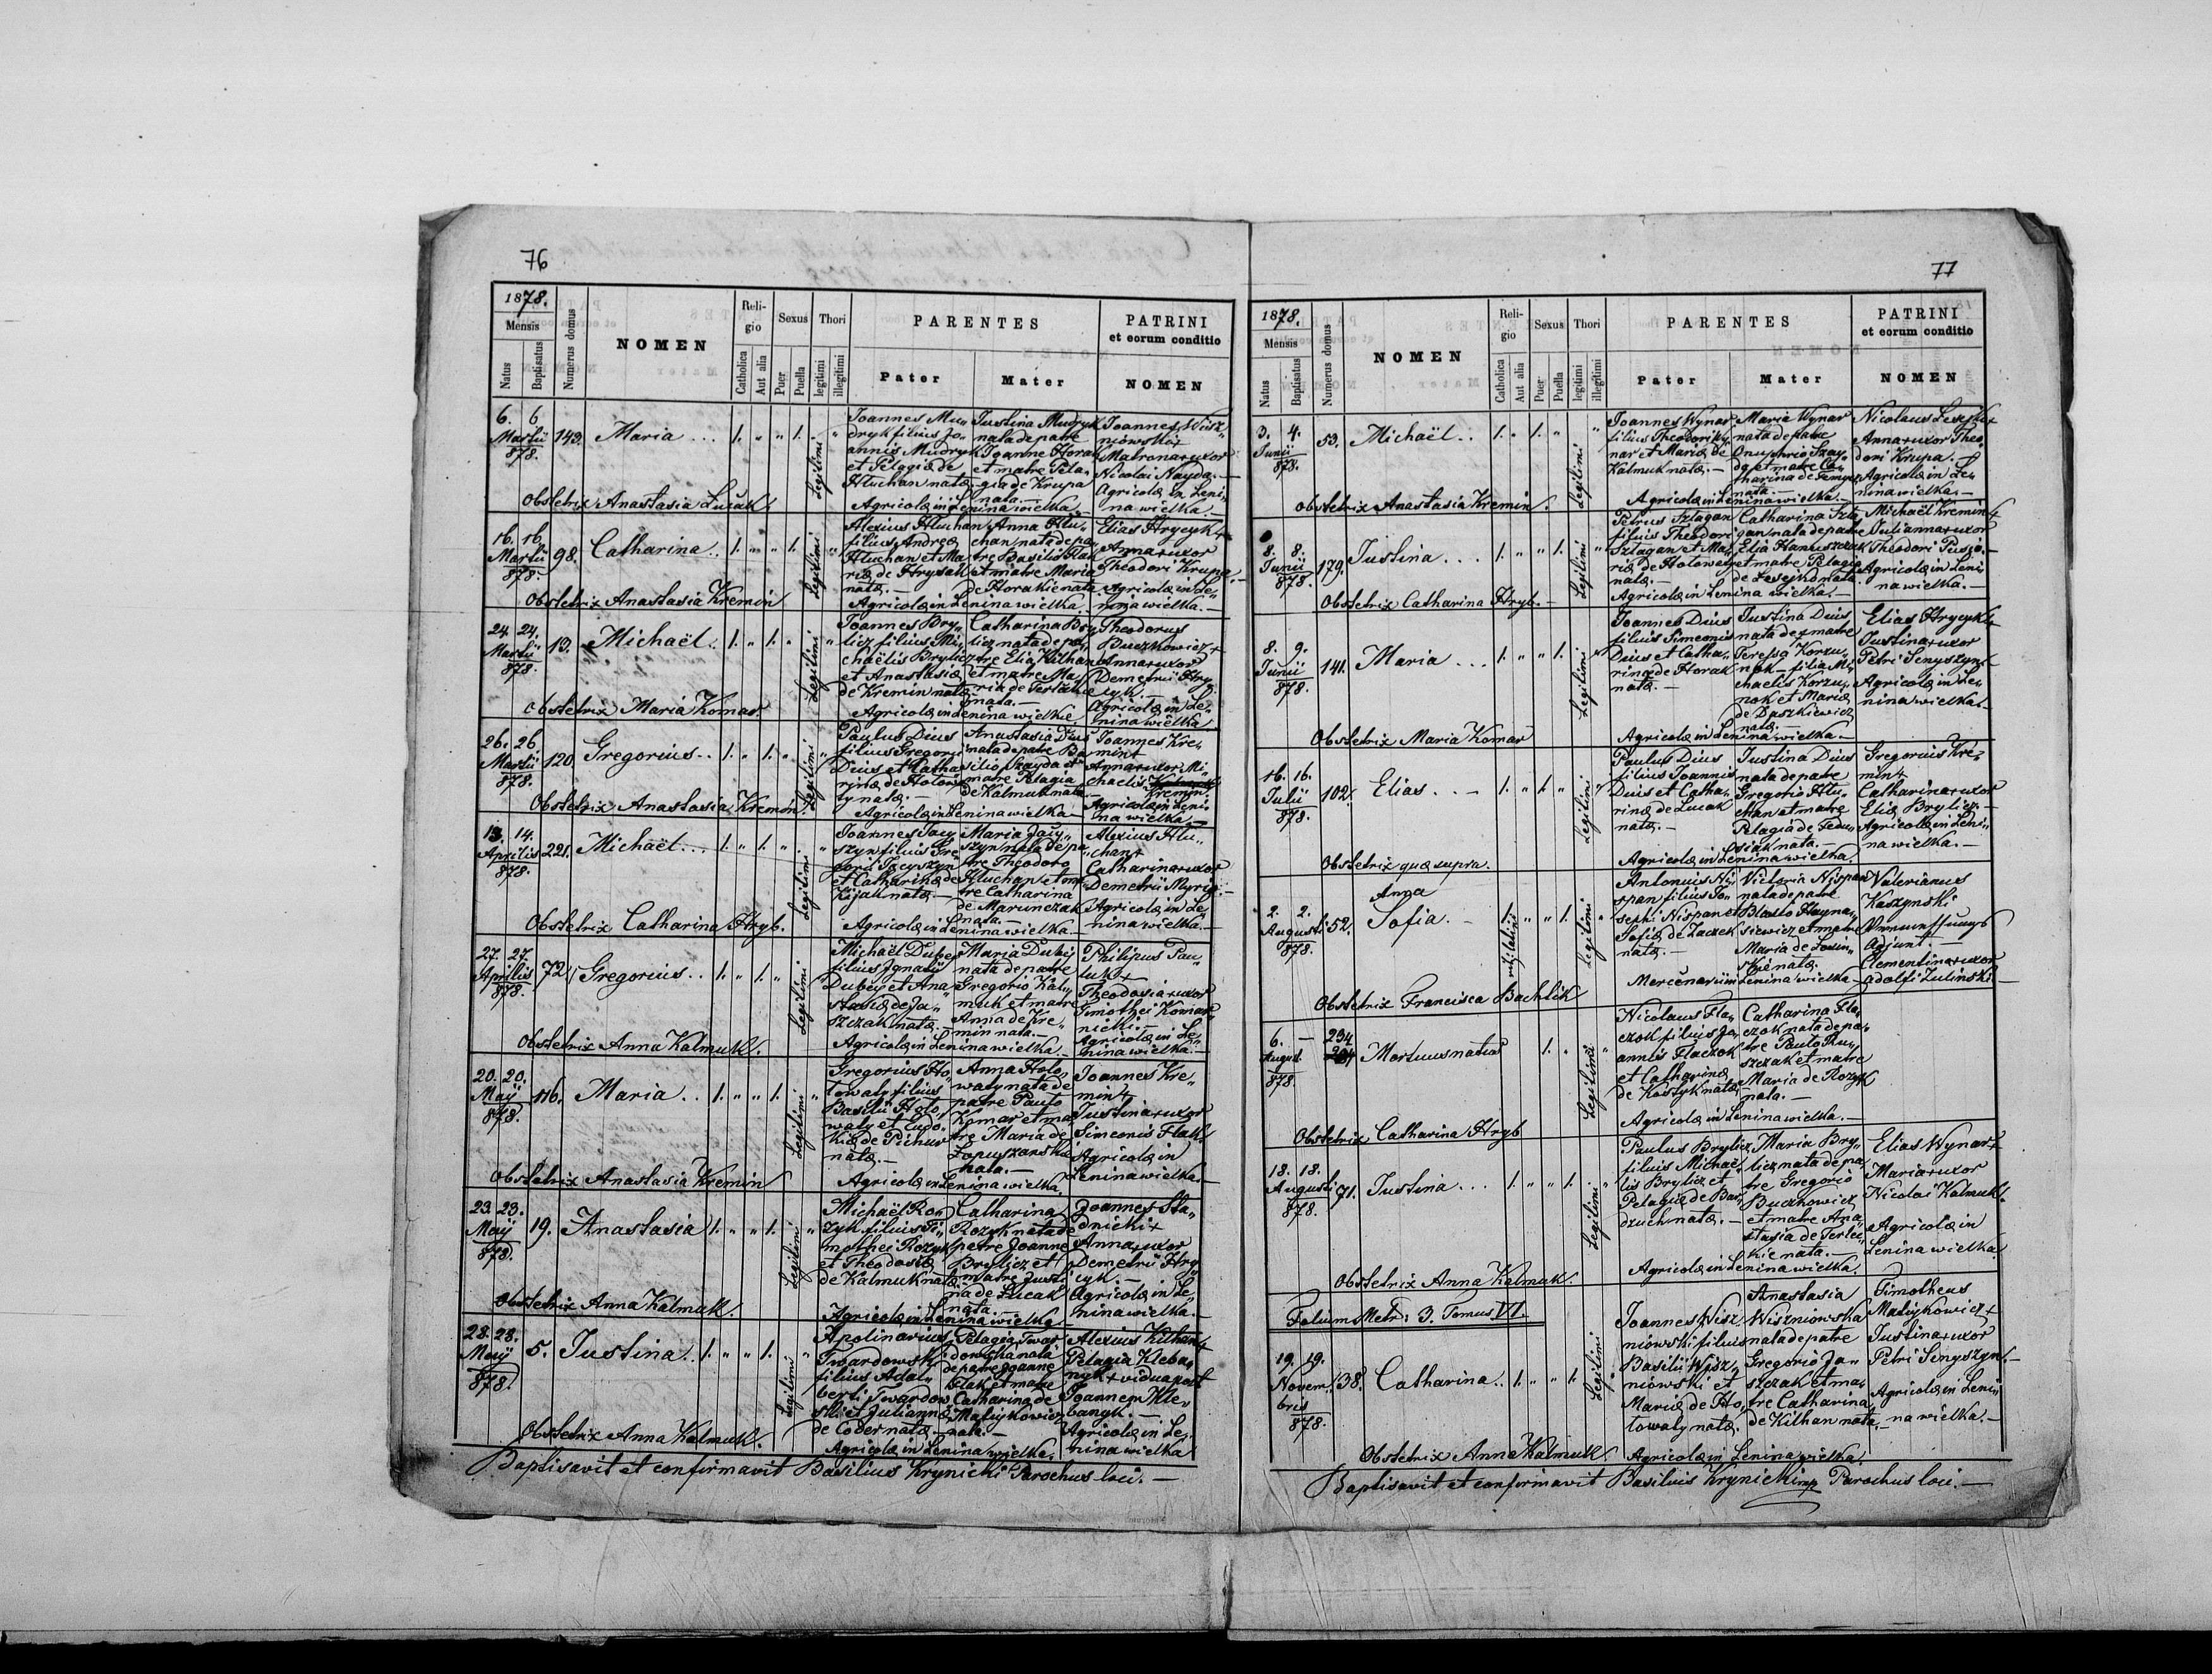 76
1878.
Mensis
Natus
Baptisatus
Numerus domus
NOMEN
Reli-
gio
Catholica
Aut alia
Sexus
Puer
Puella
Thori
legitimi
illegitimi
PARENTES
Pater
Mater
PATRINI
et eorum conditio
NOMEN
6. 6
Martii
878.
143. Maria ... 1. " " 1. "
Legitimi
Joannes Mu„
dryk filius Jo„
annis Mudryk
et Pelagiæ de
Hluchan natæ.
Justina Mudryk
nata de patre
Joanne Horak
et matre Pela„
gia de Krupa
nata.—
Agricolæ in Lenina wielka.
Joannes Wisz„
niowski +
Matrona + uxor
Nicolai Nayda.—
Agricolæ in Leni„
na wielka.—
Obstetrix Anastasia Łucak.
16. 16.
Martii
878.
98. Catharina .. 1. " " 1. "
Legitimi
Alexius Hluchan
filius Andreæ
Hluchan et Ma„
riæ de Hrysak
natæ.—
Anna Hlu„
chan nata de pa„
tre Basilio Flak
et matre Maria
de Horakie nata
Agricolæ in Lenina wielka.
Elias Hrycyk +
Anna + uxor
Theodori Krupa.—
Agricolæ in Le„
nina wielka.—
Obstetrix Anastasia Kremin
24. 24.
Martii
878.
13. Michaël. 1. " 1. " "
Legitimi
Joannes Bry„
licz filius Mi„
chaëlis Brylicz
et Anastasiæ
de Kremin natæ
Catharina Bry„
licz nata de pa„
tre Elia Kilhan
et matre Ma„
ria de Terlecke
nata.—
Agricolæ in Lenina wielka
Theodorus
Buczkowicz +
Anna + uxor
Demetrii Hry„
cyk.—
Agricolæ in Le„
nina wielka
Obstetrix Maria Komar.
26. 26.
Martii
878.
120. Gregorius .. 1. " 1. " "
Legitimi
Paulus Dius
filius Gregorii
Dius et Catha„
rinæ de Hotow„
ty natæ.—
Anastasia Dius
nata de patre Ba„
silio Szayda et
matre Pelagia
de Kalmuk nata
Agricolæ in Lenina wielka
Joannes Kre„
min +
Anna + uxor Mi„
chaelis
Kremin.
Agricolæ in Leni„
na wielka.—
Obstetrix Anastasia Kremin.
13. 14.
Aprilis
878.
221. Michaël ... 1. " 1. " "
Legitimi
Maria Jacy„
szyn nata de pa„
tre Theodoro
Hluchan et ma„
tre Catharina
de Marunczak
nata.—
et Catharinæ de
Kijak natæ.—
Agricolæ in Lenina wielka.—
Alexius Hlu„
chan +
Catharina + uxor
Demetrii Myrig.—
Agricolæ in Le„
nina wielka.—
Obstetrix Catharina Hryb.
27. 27.
Aprilis
878.
72. Gregorius .. 1. " 1. "
Legitimi
Michaël Dubej
filius Ignatii
Dubej et Ana„
stasiæ de Ja„
szczak natæ.—
Maria Dubej
nata de patre
Gregorio Kal„
muk et matre
Anna de Kre„
min nata.—
Agricolæ in Lenina wielka.—
Philipus Pau„
luk +
Theodosia + uxor
Timothei Komar„
nicki.—
Agricolæ in Le„
nina wielka.
Obstetrix Anna Kalmuk.
20. 20.
Maÿ
878.
116. Maria .. 1. " " 1. "
Legitimi
Gregorius Ho„
towaty filius
Basilii Hoto„
waty et Eudo„
kiæ de Pichur
natæ.—
Anna Hoto„
waty nata de
patre Paulo
Komar et ma„
tre Maria de
Łopuszanska
nata.—
Agricolæ in Lenina wielka.
Joannes Kre„
min +
Justina + uxor
Simeonis Flak.
Agricolæ in
Lenina wielka.—
Obstetrix Anastasia Kremin
23. 23.
Maÿ
878.
19. Anastasia 1. " " 1. "
Legitimi
Michaël Ro„
zyk filius Ti„
mothei Rozyk
et Theodosiæ
de Kalmuk natæ
Catharina
Rozyk nata de
patre Joanne
Brylicz et
matre Justi„
na de Łucak
nata.—
Agricolæ in Lenina wielka
Joannes Sta„
dnicki +
Anna + uxor
Demetrii Hry„
cyk.—
Agricolæ in Le„
nina wielka.—
Obstetrix Anna Kalmuk.
28. 28.
Maÿ
878.
5. Justina .. 1. " " 1. "
Legitimi
Apolinarius
Twardowski
filius Adal„
berti Twardow„
ski et Juliannæ
de Coder natæ.—
Pelagia Twar„
dowska nata
de patre Joanne
Flak et matre
Catharina de
Matiykowicz
nata.—
Agricolæ in Lenina wielka.
Alexius Kilhan +
Pelagia Kleba„
nyk + vidua post
Joannem Kle„
banyk.—
Agricolæ in Le„
nina wielka
Obstetrix Anna Kalmuk.
Baptisavit et confirmavit Basilius Krynicki Parochus loci.—
77
1878.
Mensis
Natus
Baptisatus
Numerus domus
NOMEN
Reli-
gio
Catholica
Aut alia
Sexus
Puer
Puella
Thori
legitimi
illegitimi
PARENTES
Pater
Mater
PATRINI
et eorum conditio
NOMEN
3. 4.
Junii
878.
53. Michaël .. 1. " 1. " "
Legitimi
Joannes Wynar
filius Theodori Wy„
nar et Mariæ de
Kalmuk natæ.—
Maria Wynar
nata de patre
Onuphrio Szay„
da et matre Ca„
tharina de
nata.—
Agricolæ in Lenina wielka.—
Nicolaus Leszko +
Anna + uxor Theo„
dori Krupa.—
Agricolæ in Le„
nina wielka.—
Obstetrix Anastasia Kremin.
8. 8.
Junii
878.
179. Justina ... 1. " " 1. "
Legitimi
Petrus Sztagan
filius Theodori
Sztagan et Ma„
riæ de Hotowaty
natæ.—
Catharina Szta„
gan nata de patre
Elia Hanuszczak
et matre Pelagia
de Leseyko nata.
Agricolæ in Lenina wielka.—
Michaël Kremin +
Julianna + uxor
Theodori Pusio.—
Agricolæ in Leni„
na wielka.—
Obstetrix Catharina Hryb.—
8. 9.
Junii
878.
141. Maria ... 1. " " 1. "
Legitimi
Joannes Dius
filius Simeonis
Dius et Catha„
rinæ de Horak
natæ.—
Justina Dius
nata de matre
Teressa Korzu„
nok — filia Mi„
chaelis Korzu„
nok et Mariæ
de Daszkiewicz
natæ.—
Agricolæ in Lenina wielka.—
Elias Hrycyk +
Justina + uxor
Petri Senyszyn.—
Agricolæ in Le„
nina wielka.—
Obstetrix Maria Komar
16. 16.
Julii
878.
102. Elias ... 1. " 1. " "
Legitimi
Paulus Dius
filius Joannis
Dius et Catha„
rinæ de Łucak
natæ.—
Justina Dius
nata de patre
Gregorio Hlu„
chan et matre
Pelagia de Fedu„
siak nata.—
Agricolæ in Lenina wielka.
Gregorius Kre„
min +
Catharina + uxor
Eliæ Brylicz.—
Agricolæ in Leni„
na wielka.—
Obstetrix quæ supra.
2. 2.
Augusti
878.
52. Anna
Sofia .. 1. " " 1. "
rit. latini
Legitimi
Antonius Ni„
span filius Jo„
sephi Nispan et
Sofiæ de Zacek
natæ.—
Victoria Nispan
nata de patre
Blasio Hayna„
siewicz et matre
Maria de
nata.
Mercenarii in Lenina wielka.—
Valerianus
Kaszynski
Adjunt.—
Clementina + uxor
Adolfi Zulinski.—
Obstetrix Francisca Bachlik
6. —
August
878.
234
Mortuus natus 1. " "
Legitimi
Nicolaus Fla„
czok filius Jo„
annis Flaczok
et Catharinæ
de Kostyk natæ.
Catharina Fla„
czok nata de pa„
tre Paulo Hru„
szczak et matre
Maria de Rozyk
nata.—
Agricolæ in Lenina wielka.—
Obstetrix Catharina Hryb
18. 18.
Augusti
878.
71. Justina ... 1. " " 1. "
Legitimi
Paulus Brylicz
filius Michaë„
lis Brylicz et
Pelagiæ de Bar„
dzuch natæ.—
Maria Bry„
licz nata de pa„
tre Gregorio
Buczkowicz
et matre Ana„
stasia de Terlec„
kie nata.—
Agricolæ in Lenina wielka.
Elias Wynar +
Maria + uxor
Nicolai Kalmuk.
Agricolæ in
Lenina wielka
Obstetrix Anna Kalmuk.
Folium Metr: 3. Tomus VI.
19. 19.
Novem„
bris
878.
38. Catharina .. 1. " " 1. "
Legitimi
Joannes Wisz„
niowski filius
Basilii Wisz„
niowski et
Mariæ de Ho„
towaty natæ.
Anastasia
Wiszniowska
nata de patre
Gregorio Ja„
szczak et ma„
tre Catharina
de Kilhan nata.
Agricolæ in Lenina wielka.
Timotheus
Matiykowicz +
Justina + uxor
Petri Senyszyn.—
Agricolæ in Leni„
na wielka.—
Obstetrix Anna Kalmuk.
Baptisavit et confirmavit Basilius Krynicki mp Parochus loci.—